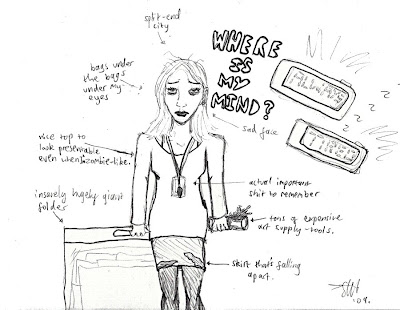 split-end
city
WHERE
IS
MY
MIND?
bags under
the bags
under my
eyes
ALWAYS
TIRED
Z
Z
Z
sad face
nice top to
look presentable
even when zombie-like.
insanely hugely giant
folder
actual important
shit to remember
tons of expensive
art supply-tools.
skirt that's falling
apart.
'09.